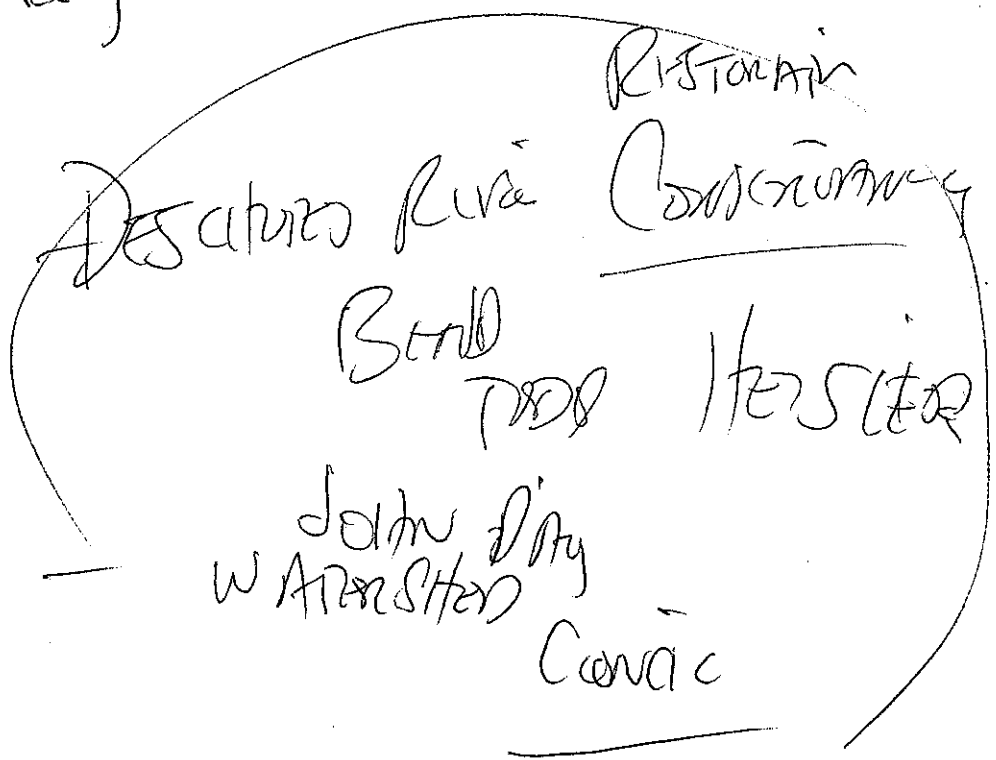 RESTORATN
DESCHUTES RIVER CONSERVANCY
BEND
TODD HEISLER
JOHN DAY
WATERSHED
COUNCIL